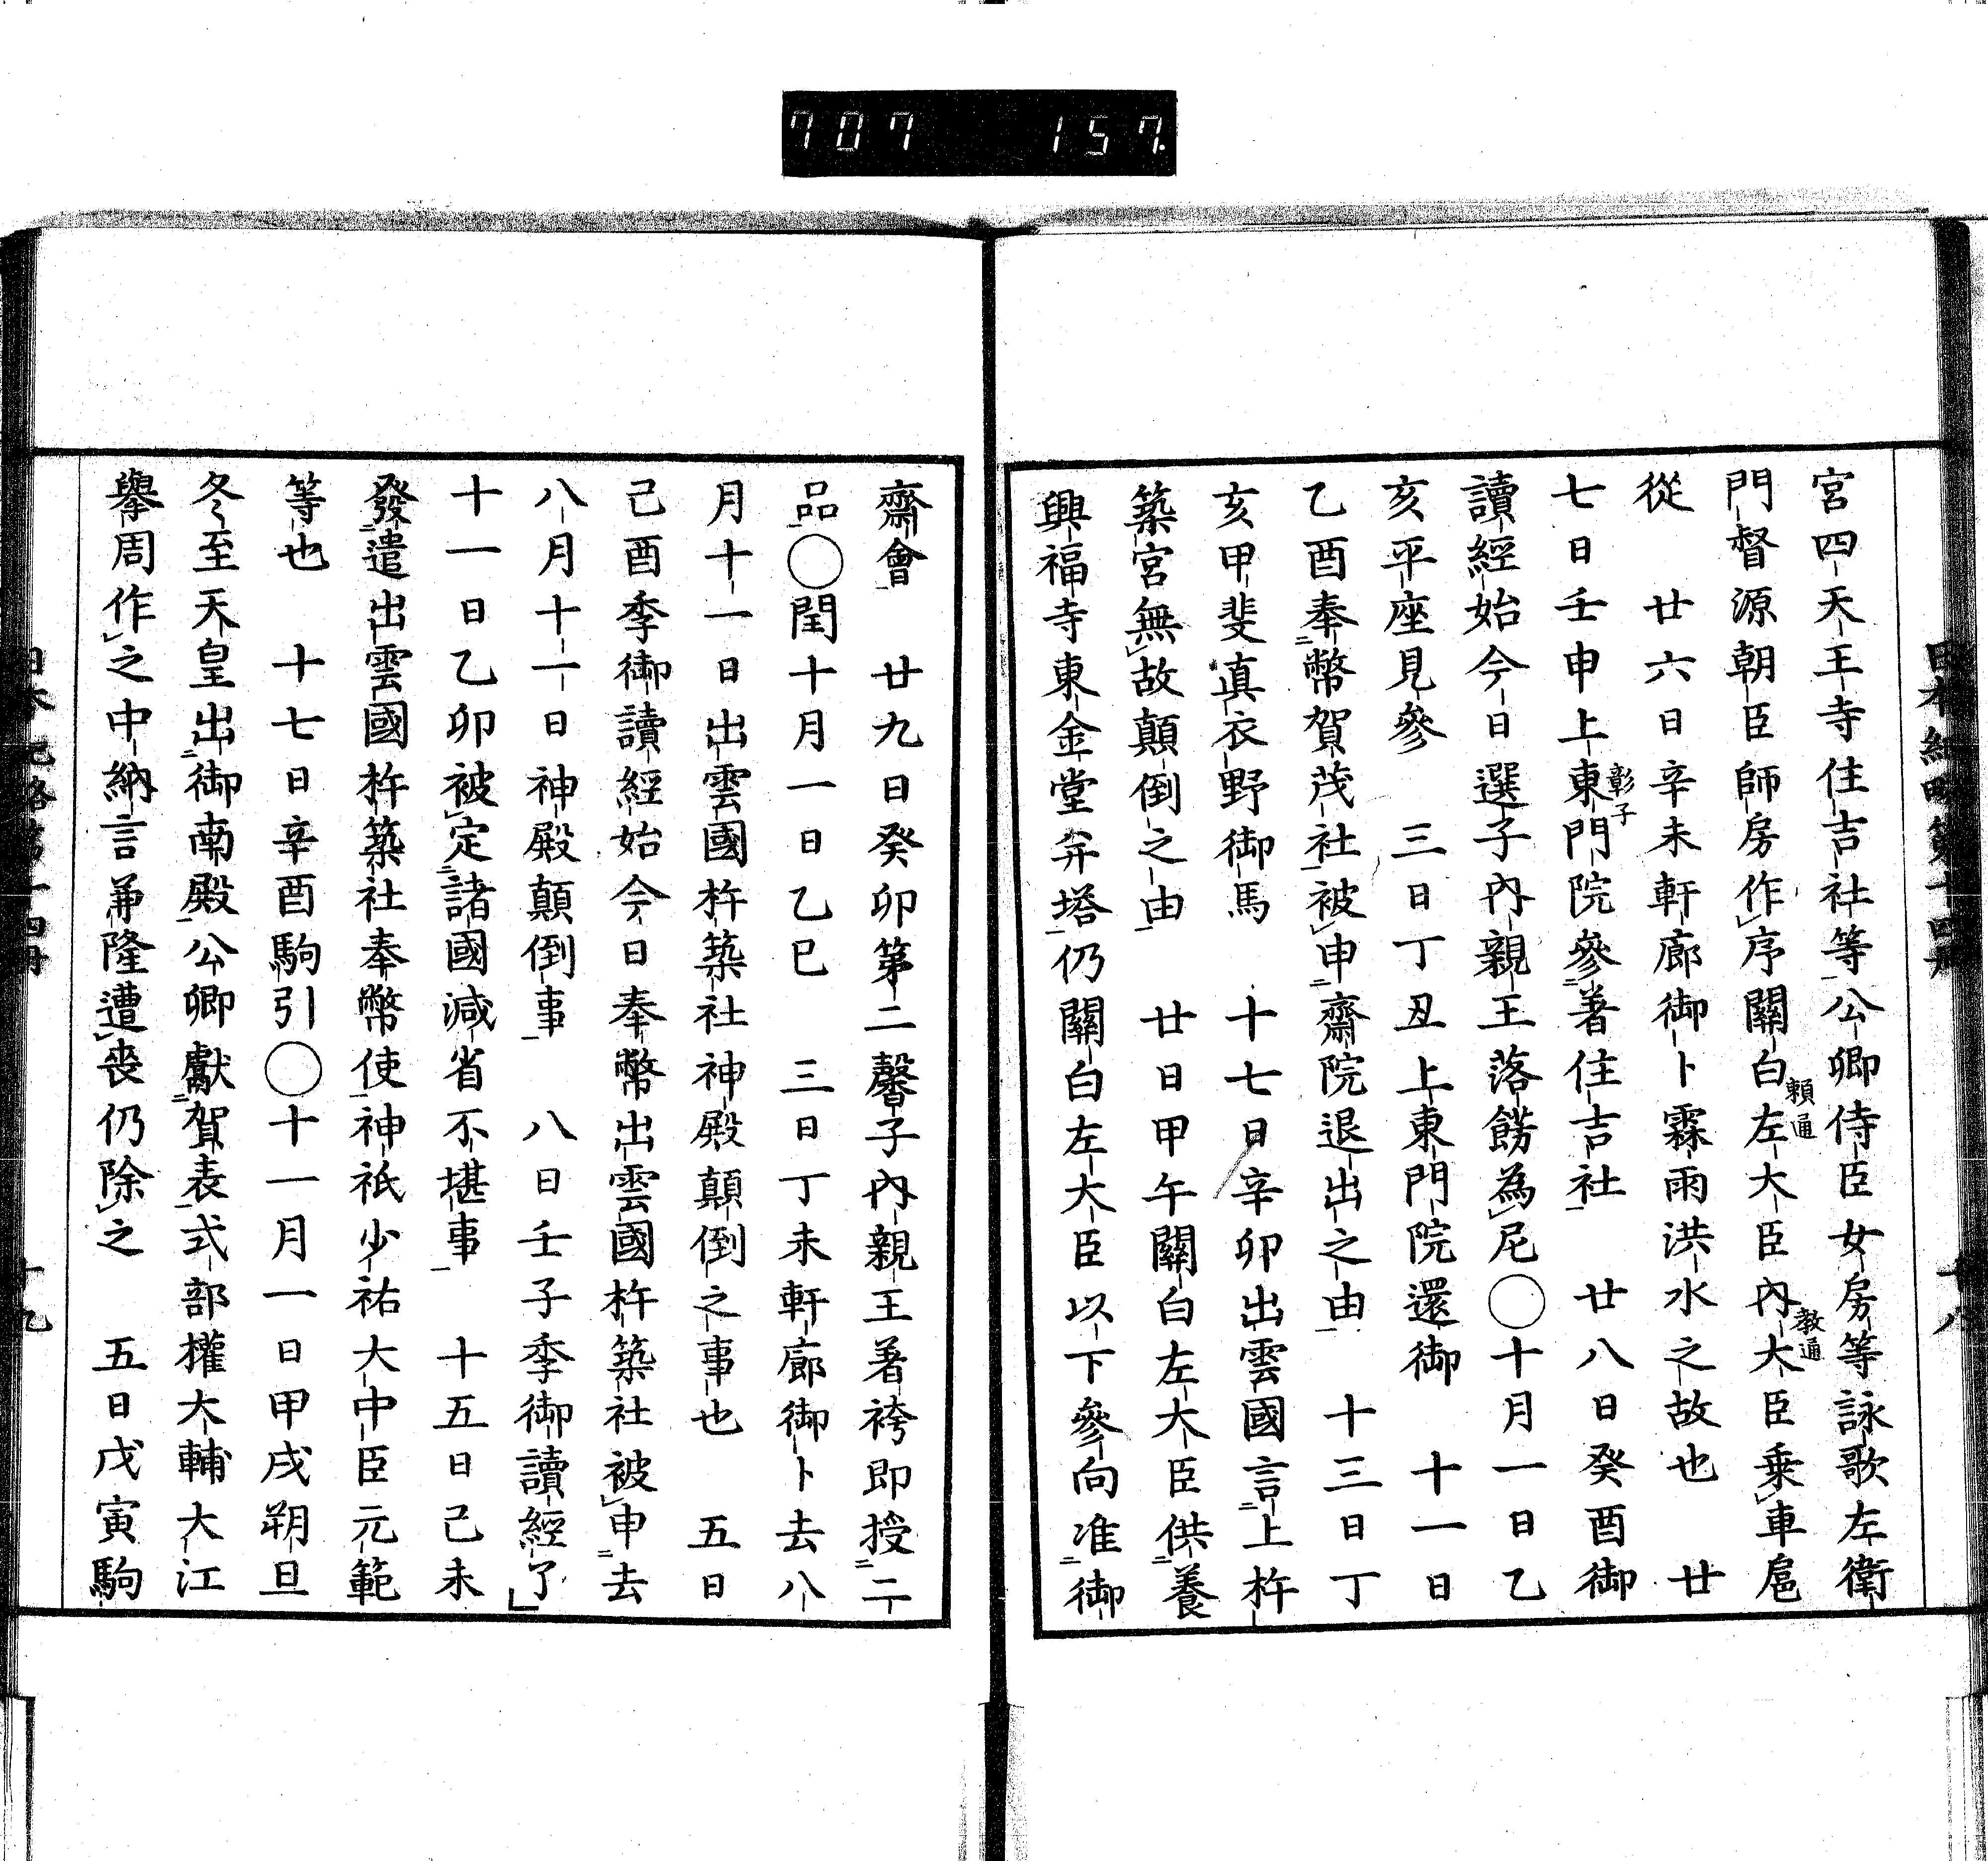 707 157.
宮四天王寺住吉社等公卿侍臣女房等詠歌左衛
門督源朝臣師房作序關白左大臣內大臣乘車扈
頼通
教通
從　廿六日辛未軒廊御卜霖雨洪水之故也　廿
七日壬申上東門院參著住吉社　廿八日癸酉御
彰子
讀經始今日選子內親王落餝為尼〇十月一日乙
亥平座見參　三日丁丑上東門院還御　十一日
乙酉奉幣賀茂社被申齋院退出之由　十三日丁
亥甲斐真衣野御馬　十七日辛卯出雲國言上杵
築宮無故顛倒之由　廿日甲午關白左大臣供養
興福寺東金堂并塔仍關白左大臣以下參向准御
齋會　廿九日癸卯第二馨子內親王著袴即授二
品〇閏十月一日乙巳　三日丁未軒廊御卜去八
月十一日出雲國杵築社神殿顛倒之事也　五日
己酉季御讀經始今日奉幣出雲國杵築社被申去
八月十一日神殿顛倒事　八日壬子季御讀經了
十一日乙卯被定諸國減省不堪事　十五日己未
發遣出雲國杵築社奉幣使神祇少祐大中臣元範
等也　十七日辛酉駒引〇十一月一日甲戌朔旦
冬至天皇出御南殿公卿獻賀表式部權大輔大江
擧周作之中納言兼隆遭喪仍除之　五日戊寅駒